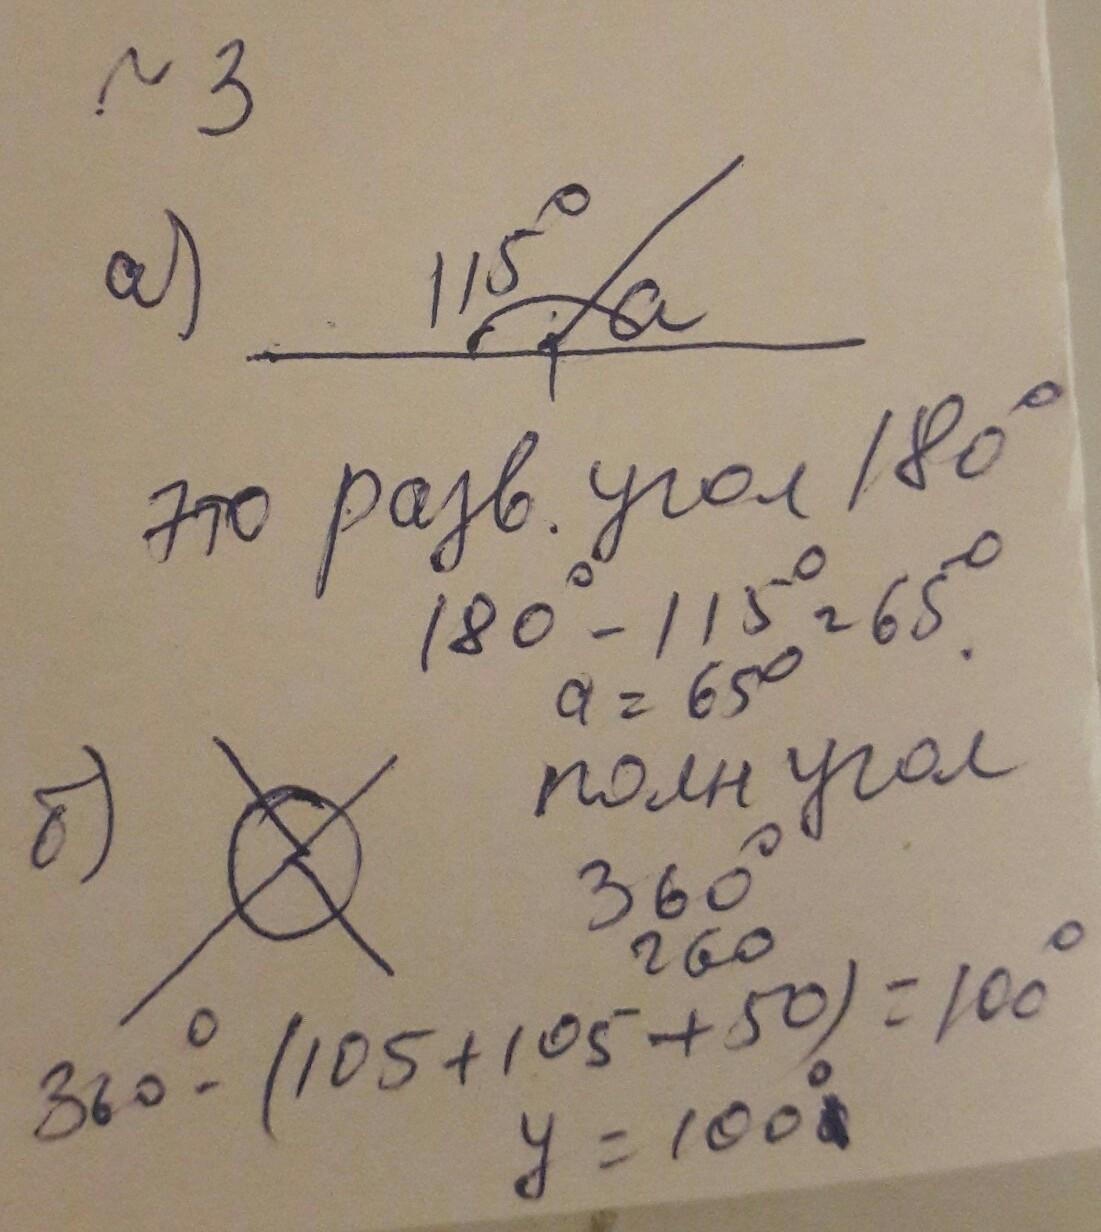 ~ 3
а)
115°
a
это разв. угол 180°
180° - 115° = 65°.
a = 65°
б)
полн угол
360°
260
360° - (105+105+50) = 100°
y = 100°